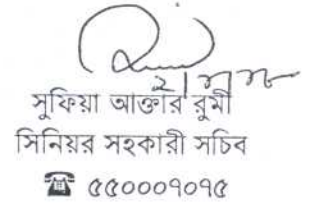 সুফিয়া আক্তার রুমী
সিনিয়র সহকারী সচিব
☎ ৫৫০০০৭০৭৫